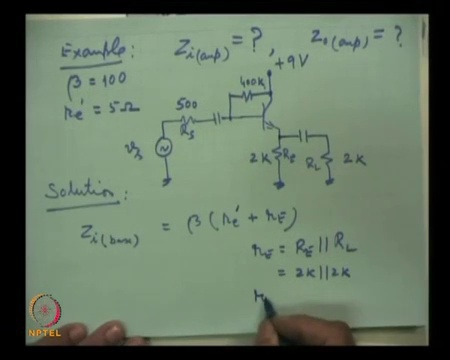 Example: Zi(amp) = ? , Zo(amp) = ?
β = 100
re' = 5Ω
+9V
400K
500
Rs
vs
2K RE
RL 2K
Solution:
Zi(base) = β (re' + rE)
rE = RE || RL
= 2K || 2K
r
NPTEL